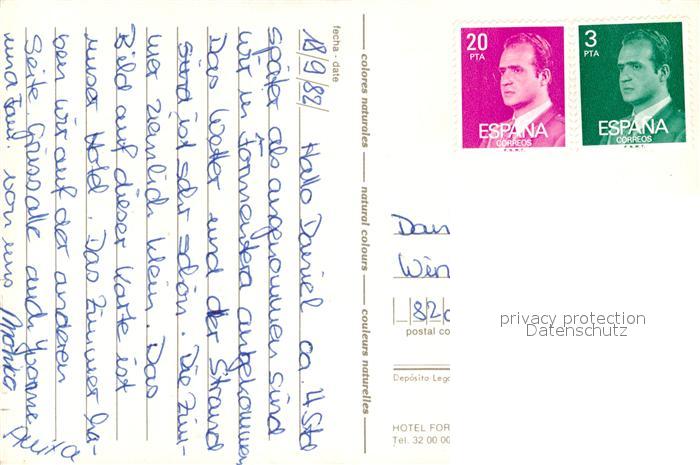 fecha - date
18/9/82/ Hallo Daniel ca. 4 Std
später als angenommen sind
wir in Formentera angekommen
Das Wetter und der Strand
sind ist sehr schön. Die Zim-
mer ziemlich klein. Das
Bild auf dieser Karte ist
unser Hotel. Das Zimmer ha-
ben wir auf der anderen
Seite. Grüss alle auch Yvonne
und Fam. von uns Monika
colores naturales
natural colours
couleurs naturelles
20
PTA
ESPAÑA
CORREOS
F.N.M.T.
3
PTA
ESPAÑA
CORREOS
F.N.M.T.
Dan
Win
820
postal co
Depósito Lega
HOTEL FOR
Tel. 32 00 00
privacy protection
Datenschutz